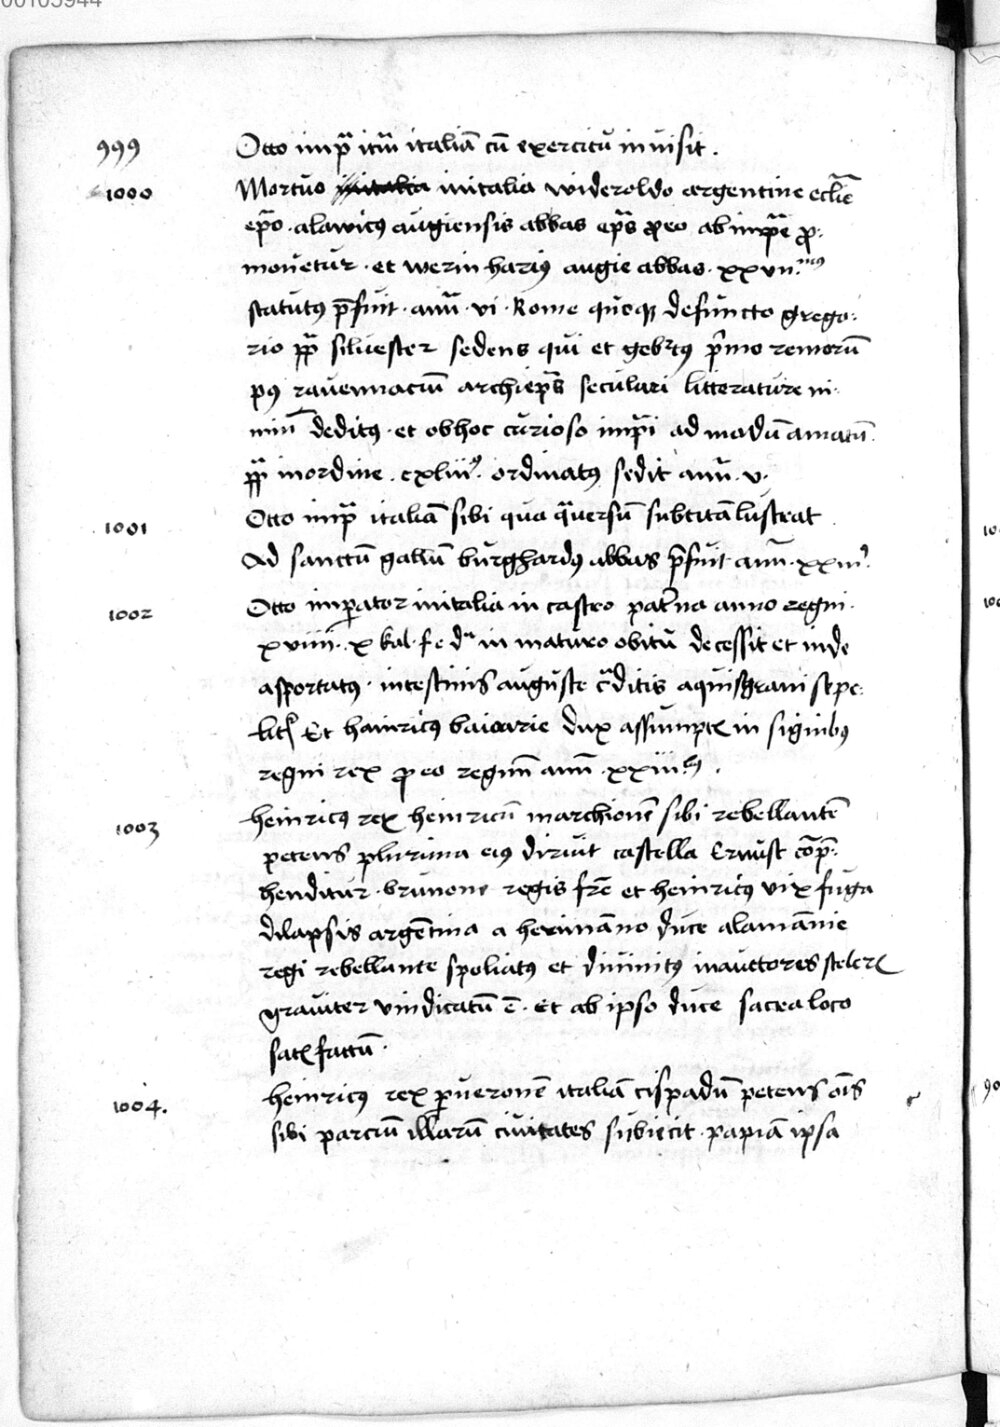 00105944
999 Otto imp̄r itm̄ italiā cū exercitu inuisit .
1000 Mortuo initalia initalia wideroldo argentine ecclīe
ep̄o · alawicus augiensis abbas ep̄s pro eo ab imp̄re pro:
mouetur · et werinharius augie abbas · xxvii.mus
statutus p̄fuit · ann̄ · vi · Rome quoque defuncto grego:
rio pp̄ siluester sedens qui et geb'tus p'mo remorū
pus rauennaciū archiep̄s seculari litterature ni:
miū deditus · et obhoc curioso imp̄ri ad modū amatū
pp̄ inordine · cxliii9 · ordinatus sedit ann̄ · v ·
1001 Otto imp̄r italiā sibi qua q̄uersū subtitā lustrat
Ad sanctū gallum burghardus abbas p̄fuit ann̄ · xxii9 ·
1002 Otto imperator initalia in castro pat'na anno regni ·
xviiii · x kal · fed᷑ in maturo obitū decessit et inde
asportatus · intestinis auguste c̄ditis aquisgrani sepe:
lit᷑ Et hainricus baioarie dux assumptis in signibus
regni rex pro eo regnū ann̄ · xxiii ·
1003 heinricus rex heinricū marchionē sibi rebellantē
petens plurima eius diruit castella Ernust cōp̄:
henditur · brunone regis fr̄e et heinricus vix fuga
dilapsis argētina a herimāno duce alamānie
regi rebellante spoliatus et diuinitus inauctores sceleris
grauiter vindicatū ē · Et ab ipso duce sacra loco
satisfactū ·
1004. heinricus rex p̱ueronē italiā cispadū petens oīs
sibi parciū illarū ciuitates subiecit · papiā ipsa